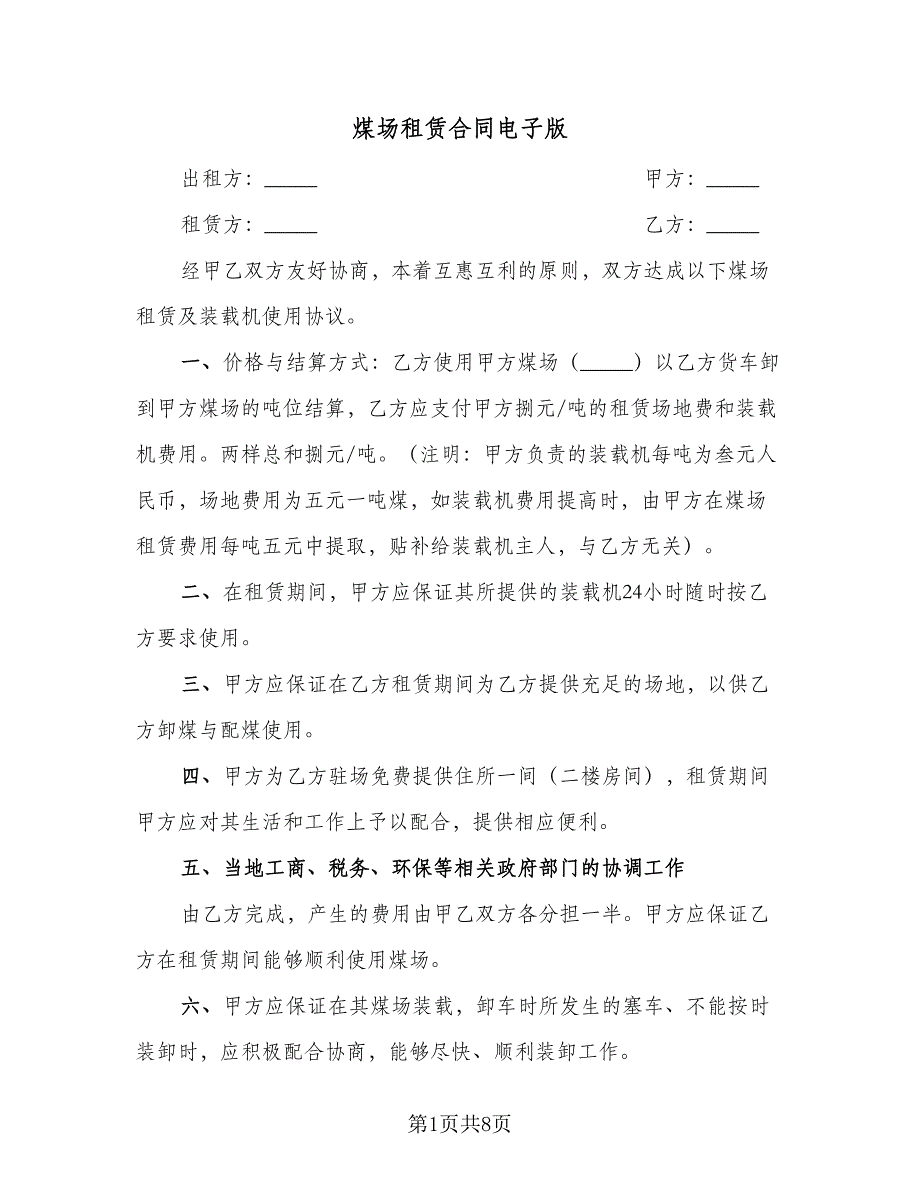 煤场租赁合同电子版
出租方：_____ 甲方：_____
租赁方：_____ 乙方：_____
经甲乙双方友好协商，本着互惠互利的原则，双方达成以下煤场
租赁及装载机使用协议。
一、价格与结算方式：乙方使用甲方煤场（_____）以乙方货车卸
到甲方煤场的吨位结算，乙方应支付甲方捌元/吨的租赁场地费和装载
机费用。两样总和捌元/吨。（注明：甲方负责的装载机每吨为叁元人
民币，场地费用为五元一吨煤，如装载机费用提高时，由甲方在煤场
租赁费用每吨五元中提取，贴补给装载机主人，与乙方无关）。
二、在租赁期间，甲方应保证其所提供的装载机24小时随时按乙
方要求使用。
三、甲方应保证在乙方租赁期间为乙方提供充足的场地，以供乙
方卸煤与配煤使用。
四、甲方为乙方驻场免费提供住所一间（二楼房间），租赁期间
甲方应对其生活和工作上予以配合，提供相应便利。
五、当地工商、税务、环保等相关政府部门的协调工作
由乙方完成，产生的费用由甲乙双方各分担一半。甲方应保证乙
方在租赁期间能够顺利使用煤场。
六、甲方应保证在其煤场装载，卸车时所发生的塞车、不能按时
装卸时，应积极配合协商，能够尽快、顺利装卸工作。
第1页共8页